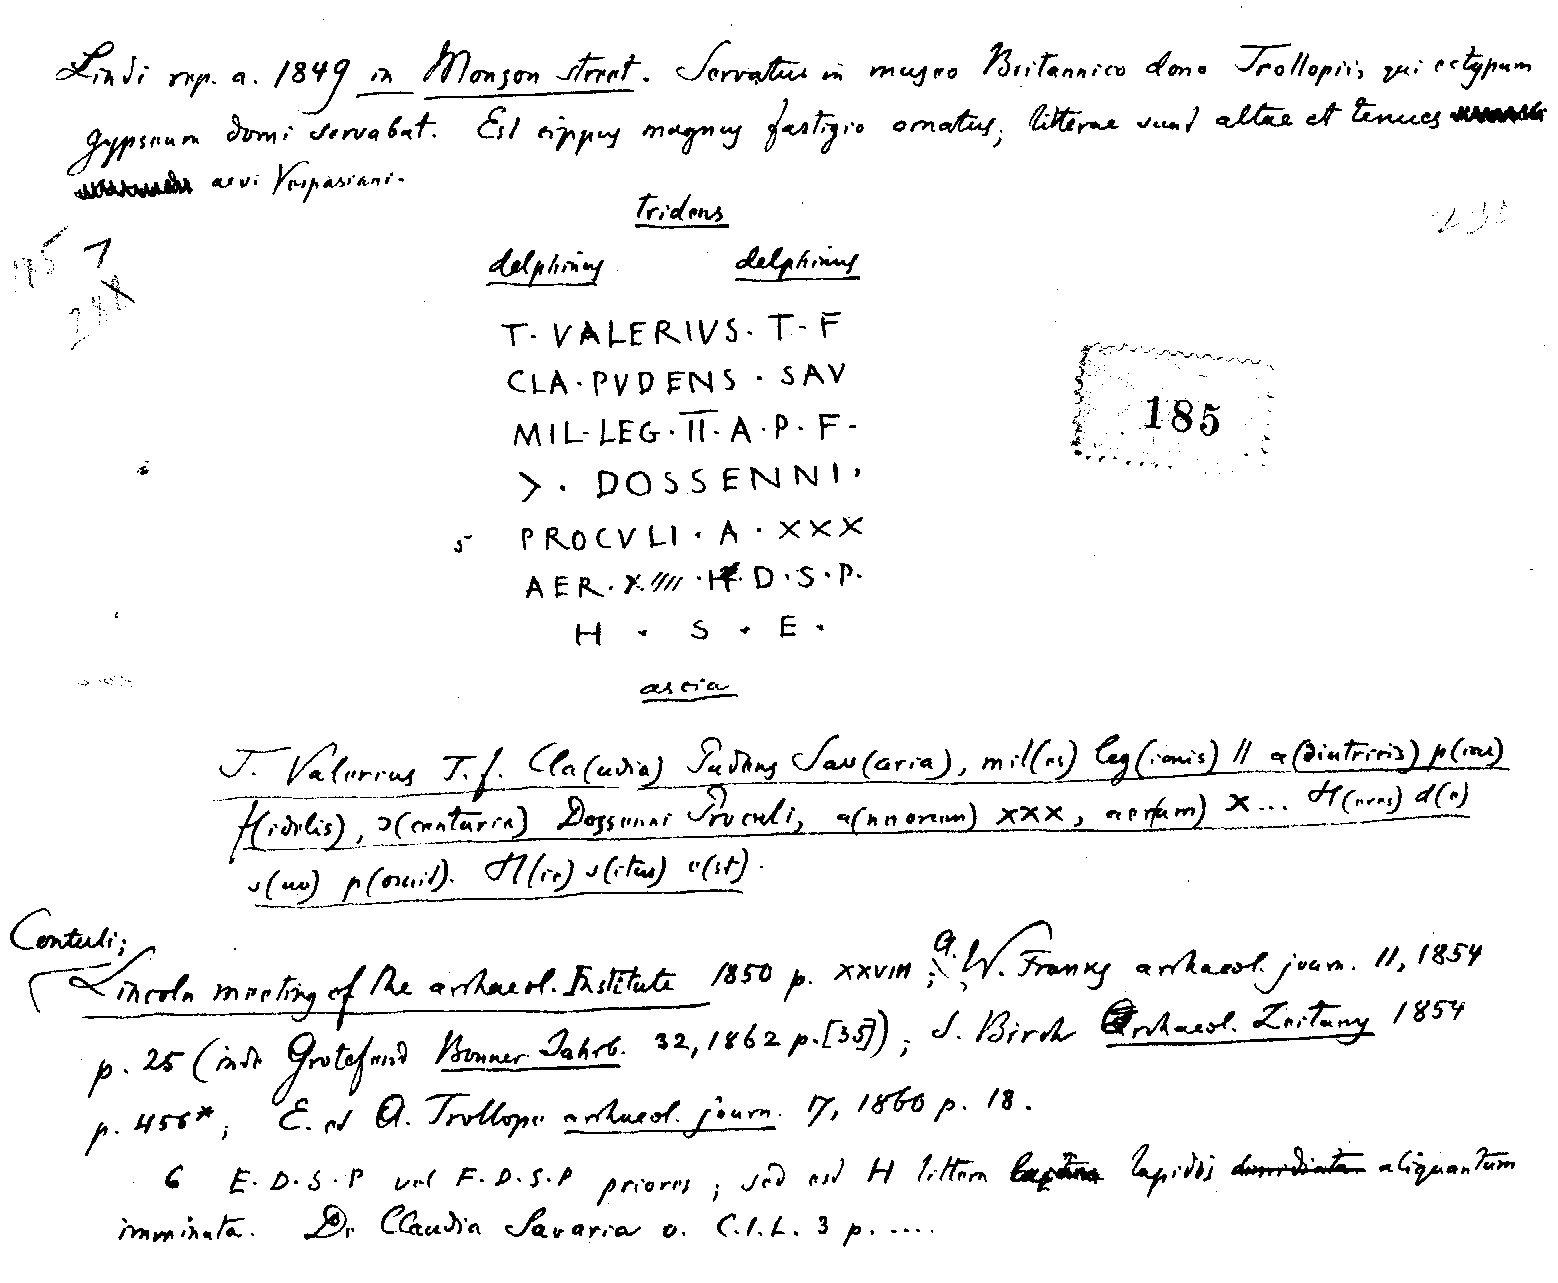 Lindi rep. a. 1849 in Monson street. Servatus in museo Britannico dono Trollopii, qui ectypum
gypseum domi servabat. Est cippus magnus fastigio ornatus; litterae sunt altae et tenues
aevi Vespasiani.
tridens
delphinus delphinus
T. VALERIVS. T. F
CLA. PVDENS. SAV
MIL. LEG. II. A. P. F.
>. DOSSENNI.
185
5 PROCVLI. A. XXX
AER. X //// . H D. S. P.
H . S . E .
ascia
T. Valerius T. f. Cla(udia) Pudens Sav(aria), mil(es) leg(ionis) II a(diutricis) p(iae)
f(idelis), Ɔ(centuria) Dossenni Proculi, a(nnorum) XXX, aer(um) X... H(eres) d(e)
s(uo) p(osuit). H(ic) s(itus) e(st).
Contuli;
Lincoln meeting of the archaeol. Institute 1850 p. XXVIII; A. W. Franks archaeol. journ. 11, 1854
p. 25 (inde Grotefend Bonner Jahrb. 32, 1862 p. [35]); S. Birch Archaeol. Zeitung 1854
p. 456*; E. et A. Trollope archaeol. journ. 17, 1860 p. 18.
6 E. D. S. P vel F. D. S. P priores; sed est H littera lapidis aliquantum
imminuta. De Claudia Savaria v. C.I.L. 3 p. ....